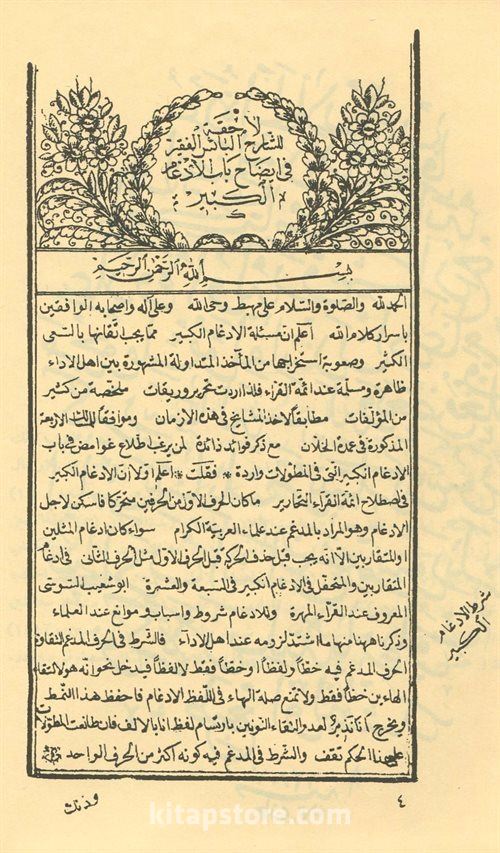 لاحقة
للشارح الناشر الفقير
فى ايضاح باب الادغام
الكبير
بسم الله الرحمن الرحيم
الحمد لله والصلوة والسلام على مهبط وحى الله وعلى آله واصحابه الواقفين
باسرار كلام الله اعلم ان مسئلة الادغام الكبير مما يجب اتقانها بالسعى
الكثير وصعوبة استخراجها من المآخذ المتداولة المشهورة بين اهل الاداء
ظاهرة ومسلمة عند ائمة القراء فلذا اردت تحرير وريقات ملخصة من كثير
من المؤلفات مطابقا لاخذ المشايخ فى هذه الازمان وموافقا الاربعة
المذكورة فى عمدة الخلان مع ذكر فوائد زائدة لمن يرغب اطلاع غوامض فى باب
الادغام الكبير التى فى المطولات واردة * فقلت * اعلم اولا ان الادغام الكبير
فى اصطلاح ائمة القراء النحارير ما كان الحرف الاول من الحرفين متحركا فاسكن لاجل
الادغام وهو المراد بالمدغم عند علماء العربية الكرام سواء كان ادغام المثلين
او المتقاربين الا انه يجب قبل حذف الحركة قبل الحرف الاول مثل الحرف الثانى فى ادغام
المتقاربين والمتحفل فى الادغام الكبير فى السبعة والعشرة ابو شعيب السوسى
المعروف عند القراء المهرة وللادغام شروط واسباب وموانع عند العلماء
وذكرنا ههنا منها ما اشتد لزومه عند اهل الاداء فالشرط فى الحرف المدغم التقاؤه
الحرف المدغم فيه خطا ولفظا او خطا فقط لا لفظا فيدخل نحو انه هو لالتقاء
الهاءين خطا فقط ولا تمنع صلة الهاء فى اللفظ الادغام فاحفظ هذا النمط
ويخرج انا نذير لعدم التقاء النونين بارتسام لفظ انا بالالف فان طالعت المطولات
على هذا الحكم تقف والشرط فى المدغم فيه كونه اكثر من الحرف الواحد
شرط الادغام
الكبير
٤
kitapstore.com